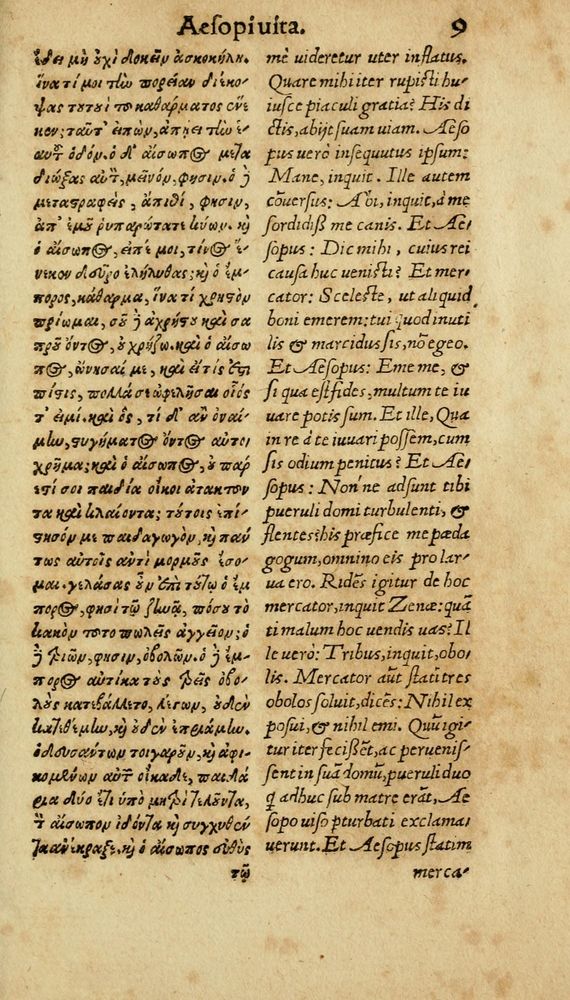 Aesopi uita. 9
ἔδει μὴ οὐχὶ δοκεῖν ἀσκοκήλη.
ἵνα τί μοι τὴν πορείαν διέκο-
ψας τουτουὶ τοῦ καθάρματος ἕνε
κεν; ταῦτ' εἰπὼν, ἀπῄει τὴν ἑ-
αυτοῦ ὁδόν. ὁ δ' αἴσωπος μετα
διώξας αὐτὸν, μεῖνον, φησίν. ὁ δὲ
μεταστραφεὶς, ἄπιθι, φησὶν,
ἀπ' ἐμοῦ ῥυπαρώτατε κύων. καὶ
ὁ αἴσωπος, εἰπέ μοι, τίνος ἕ-
νεκεν δεῦρο ἐλήλυθας; καὶ ὁ ἔμ-
πορος, κάθαρμα, ἵνα τὶ χρηστὸν
πρίωμαι, σοῦ δὲ ἀχρήστου καὶ σα
προῦ ὄντος, οὐ χρῄζω. καὶ ὁ αἴσω
πος, ὤνησαί με, καὶ εἴ τίς ἐστι
πίστις, πολλά σε ὠφελῆσαι οἷός
τ' εἰμί. καὶ ὃς, τί δ' ἂν ὀναί-
μην, στυγήματος ὄντος αὐτο-
χρῆμα; καὶ ὁ αἴσωπος, οὐ πάρ
εστί σοι παιδία οἴκοι ἄτακτον
τα καὶ κλαίοντα; τούτοις ἐπί-
στησόν με παιδαγωγὸν, καὶ πάν
τως αὐτοῖς ἀντὶ μορμοῦς ἔσο-
μαι. γελάσας οὖν ἐπὶ τούτῳ ὁ ἔμ
πορος, φησὶ τῷ ζηνᾷ, πόσου τὸ
κακὸν τοῦτο πωλεῖς ἀγγεῖον; ὁ
δὲ τριῶν, φησιν, ὀβολῶν. ὁ δὲ ἔμ-
πορος αὐτίκα τοὺς τρεῖς ὀβο-
λοὺς κατεβάλλετο, λέγων, οὐδὲν
κατεθέμην, καὶ οὐδὲν ἐπριάμην.
ὁδευσάντων τοιγαροῦν, καὶ ἀφι-
κομένων αὐτῶν οἴκαδε, παιδά
ρια δύο ἔτι ὑπὸ μητρὶ τελοῦντα,
τὸν αἴσωπον ἰδόντα καὶ συγχυθέν
τα ἀνέκραξε. καὶ ὁ αἴσωπος εὐθὺς
τῷ
me uideretur uter inflatus.
Quare mihi iter rupisti hu-
iusce piaculi gratia? His di
ctis, abijt suam uiam. Aeso
pus uerò insequutus ipsum:
Mane, inquit. Ille autem
cõuersus: Abi, inquit, à me
sordidiß me canis. Et Ae-
sopus: Dic mihi, cuius rei
causa huc uenisti? Et mer-
cator: Sceleste, ut aliquid
boni emerem: tui quod inuti
lis & marcidus sis, nõ egeo.
Et Aesopus: Eme me, &
si qua est fides, multum te iu
uare potis sum. Et ille, Qua
in re à te iuuari possem, cum
sis odium penitus? Et Ae-
sopus: Non'ne adsunt tibi
pueruli domi turbulenti, &
flentes? his præfice me pæda
gogum, omnino eis pro lar-
ua ero. Ridẽs igitur de hoc
mercator, inquit Zenæ: quã
ti malum hoc uendis uas? Il
le uerò: Tribus, inquit, obo-
lis. Mercator aũt statĩ tres
obolos soluit, dicẽs: Nihil ex
posui, & nihil emi. Quũ igi-
tur iter fecissẽt, ac peruenis-
sent in suã domũ, pueruli duo
q̃ adhuc sub matre erãt, Ae
sopo uiso pturbati exclama-
uerunt. Et Aesopus statim
merca-